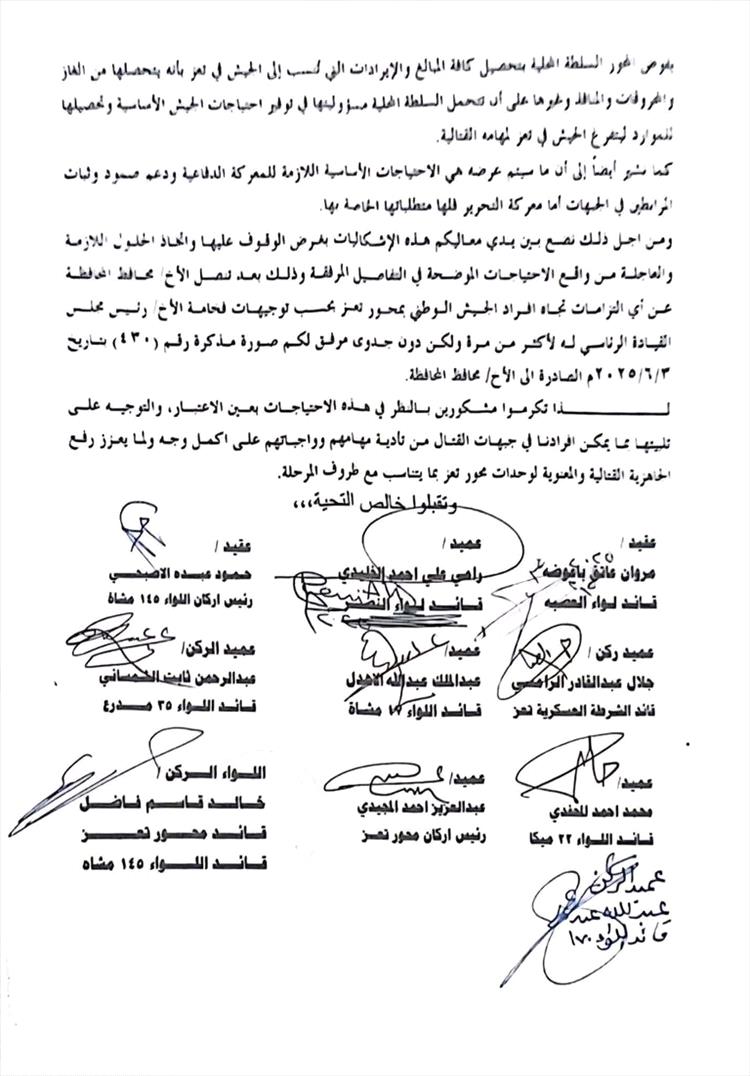 يفوض المحور السلطة المحلية بتحصيل كافة المبالغ والإيرادات التي تُنسب إلى الجيش في تعز بأنه يتحصلها من الغاز
والمحروقات والمنافذ وغيرها على أن تتحمل السلطة المحلية مسؤوليتها في توفير احتياجات الجيش الأساسية وتحصيلها
للموارد ليتفرغ الجيش في تعز لمهامه القتالية.
كما نشير أيضاً إلى أن ما سيتم عرضه هي الاحتياجات الأساسية اللازمة للمعركة الدفاعية ودعم صمود وثبات
المرابطين في الجبهات أما معركة التحرير فلها متطلباتها الخاصة بها.
ومن اجل ذلك نضع بين يدي معاليكم هذه الإشكاليات بغرض الوقوف عليها واتخاذ الحلول اللازمة
والعاجلة من واقع الاحتياجات الموضحة في التفاصيل المرفقة وذلك بعد تنصل الأخ/ محافظ المحافظة
عن أي التزامات تجاه افراد الجيش الوطني بمحور تعز بحسب توجيهات فخامة الأخ/ رئيس مجلس
القيادة الرئاسي له لأكثر من مرة ولكن دون جدوى مرفق لكم صورة مذكرة رقم (٤٣٠) بتاريخ
٢٠٢٥/٦/٣م الصادرة الى الأخ/ محافظ المحافظة.
لـــــــــذا تكرموا مشكورين بالنظر في هذه الاحتياجات بعين الاعتبار، والتوجيه على
تلبيتها بما يمكن افرادنا في جبهات القتال من تأدية مهامهم وواجباتهم على اكمل وجه ولما يعزز رفع
الجاهزية القتالية والمعنوية لوحدات محور تعز بما يتناسب مع ظروف المرحلة.
وتقبلوا خالص التحية،،،
عقيد / عميد / عقيد /
مروان عاتق باعوضه رامي علي احمد الخليدي حمود عبده الاصبحي
قائد لواء العصبه قائد لواء النصر رئيس اركان اللواء ١٤٥ مشاة
عميد ركن / عميد / عميد الركن /
جلال عبدالقادر الرامسي عبدالملك عبدالله الاهدل عبدالرحمن ثابت الشمساني
قائد الشرطة العسكرية تعز قائد اللواء ١٧ مشاة قائد اللواء ٣٥ مدرع
عميد/ عميد/ اللواء الركن /
محمد احمد للحفدي عبدالعزيز احمد المجيدي خالد قاسم فاضل
قائد اللواء ٢٢ ميكا رئيس اركان محور تعز قائد محور تعز
قائد اللواء ١٤٥ مشاه
عميد الركن
عبدالله عبده
قائد اللواء ١٧٠